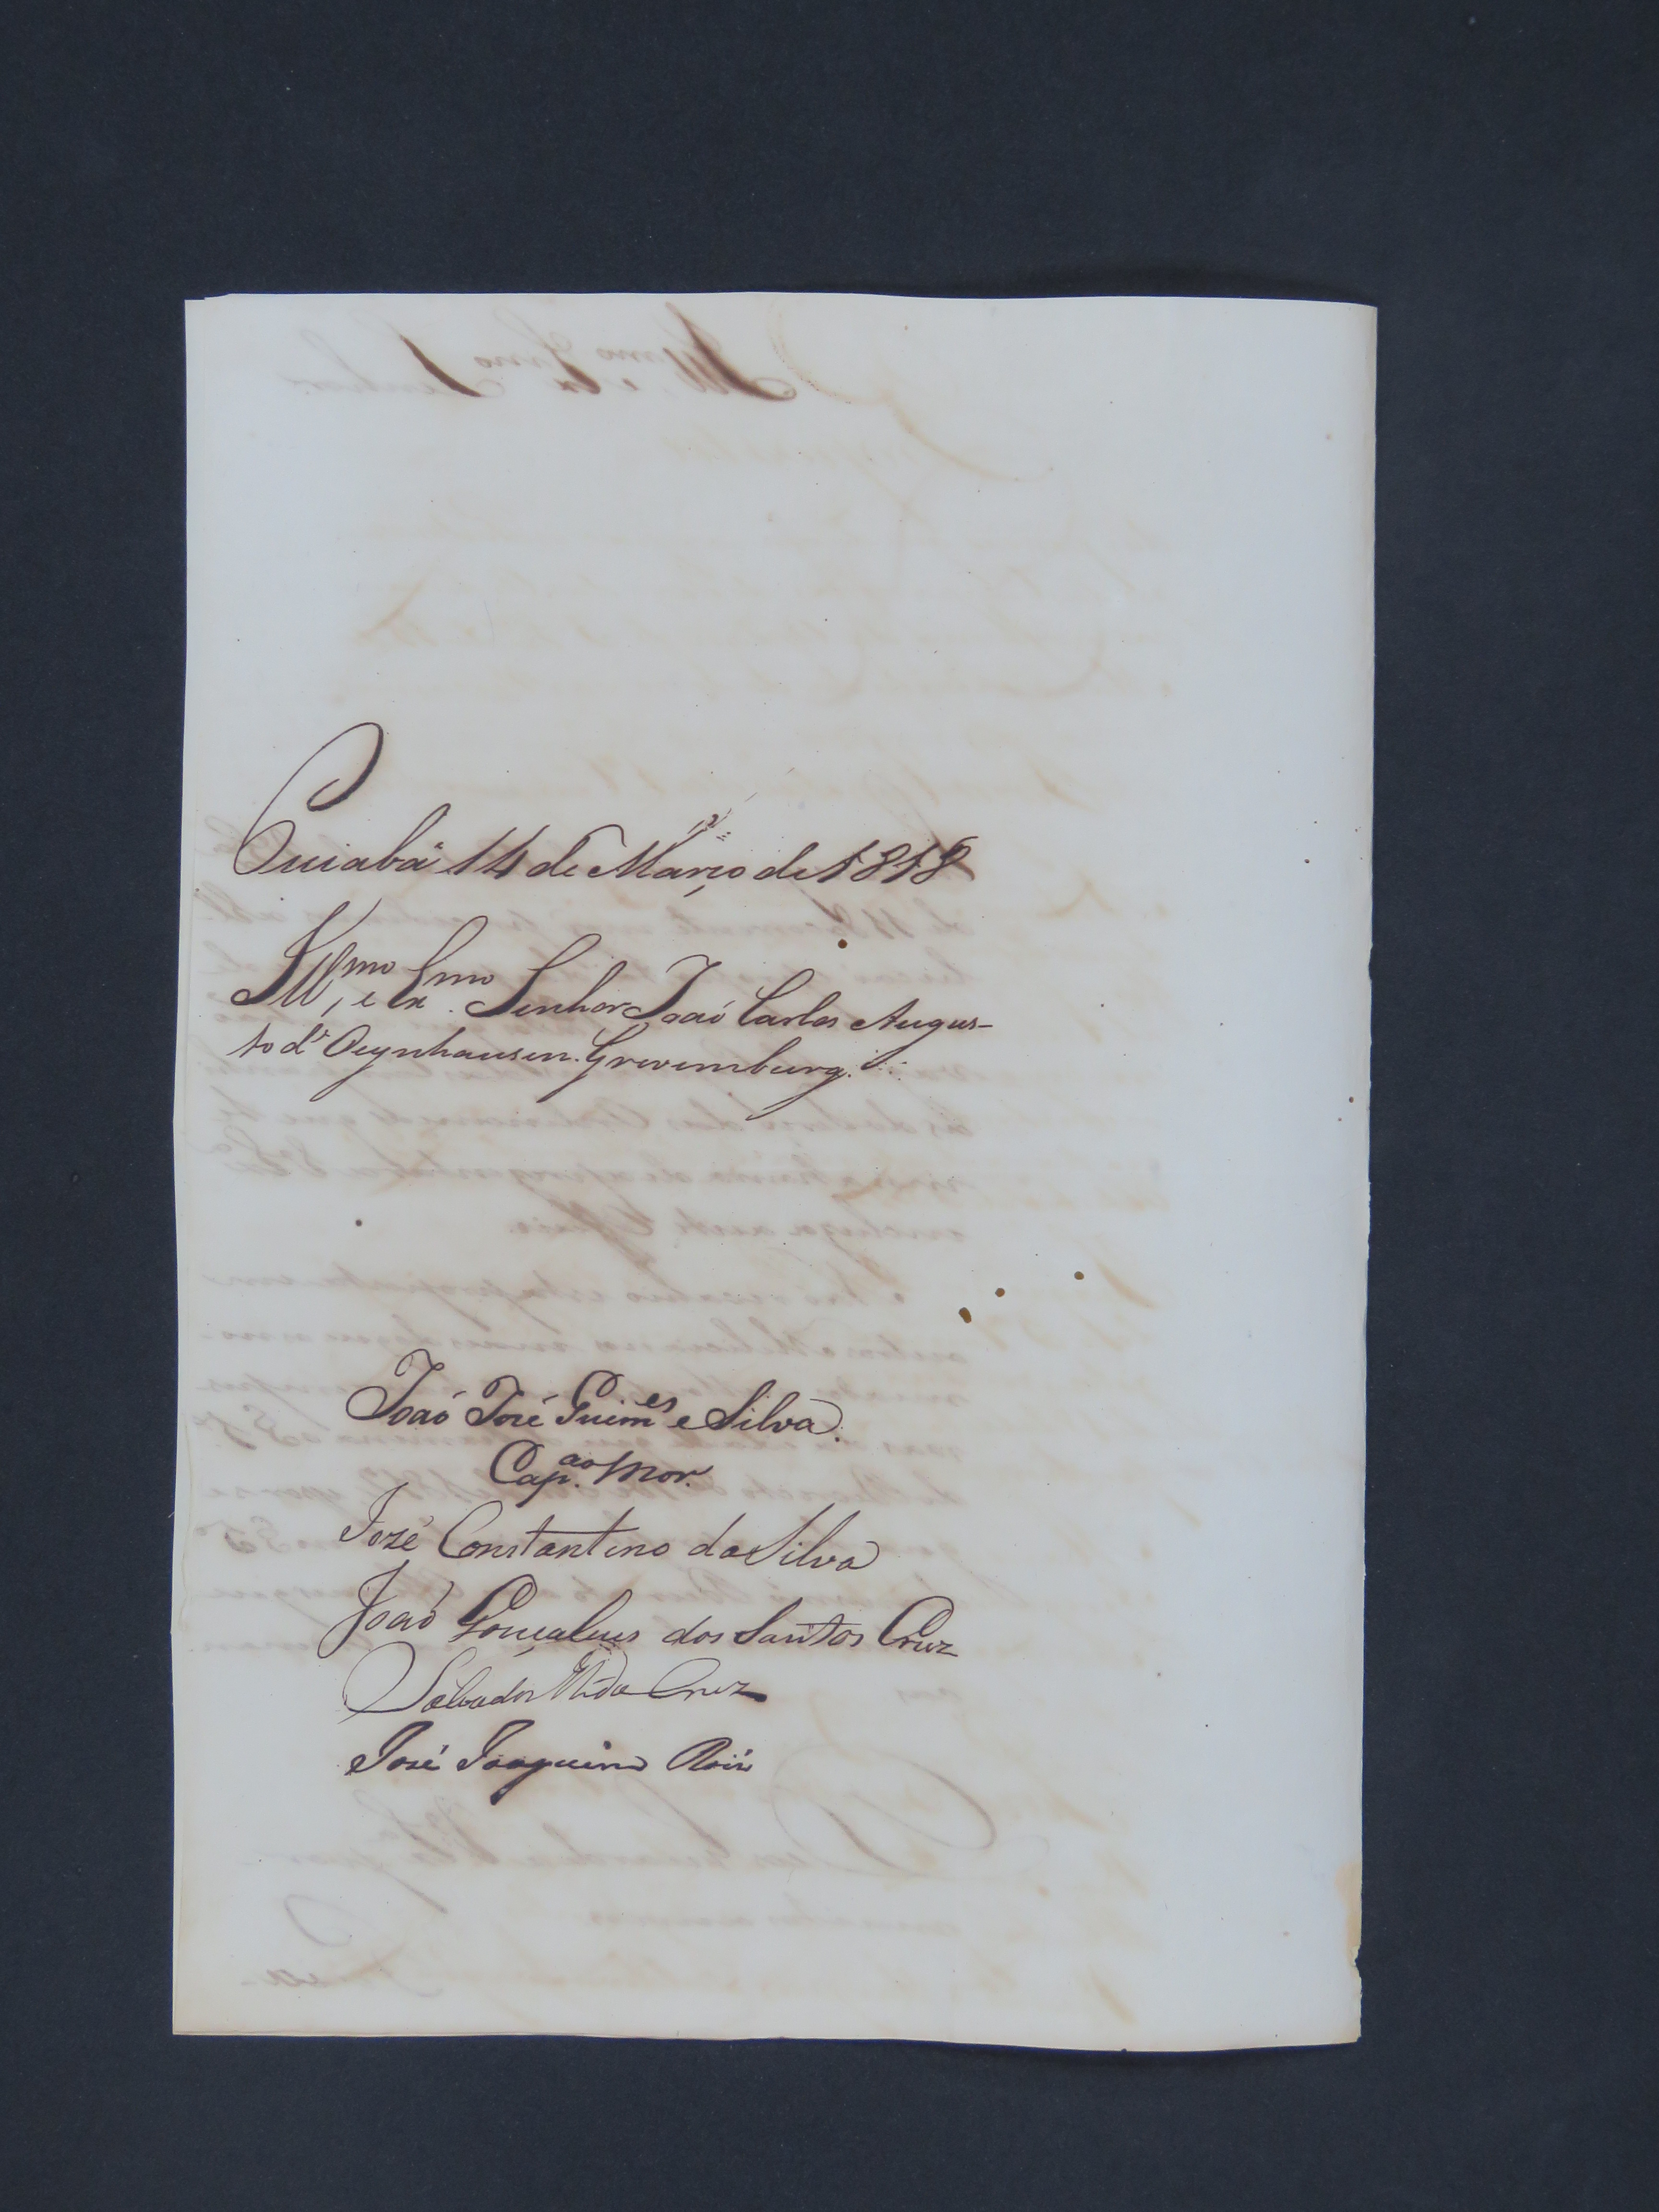 Cuiabá 14 de Março de 1818
Ill.mo e Ex.mo Senhor João Carlos Augus-
to d' Oeynhausen. Grevemburg.
João José Guim.es e Silva.
Cap.ão Mor.
José Constantino da Silva
João Gonçalves dos Santos Cruz
Salvador da Cruz
José Joaquim